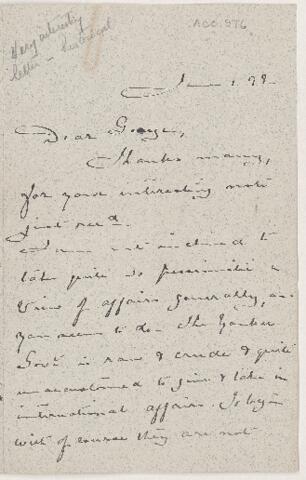 Very interesting
letter - historical
ACC. 976
Jan 1. 98.
Dear George,
Thanks many,
for your interesting note
just recd.
I am not inclined to
take quite so pessimistic a
view of affairs generally, as
you seem to do. The Yankee
Govt is raw & crude & quite
unaccustomed to give & take in
international affairs. To begin
with of course they are not